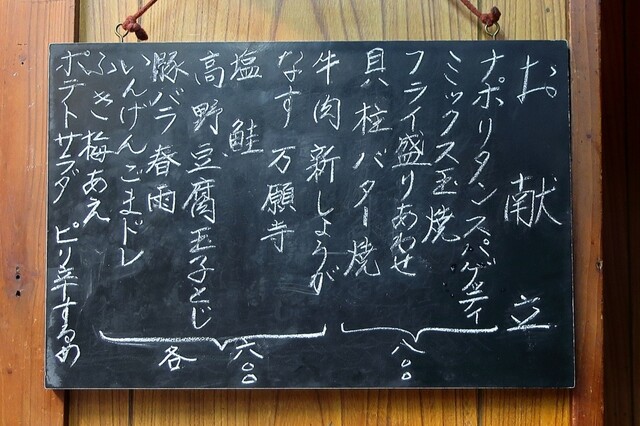 お献立
ナポリタンスパゲッティ
ミックス玉焼
フライ盛りあわせ
貝柱バター焼
八〇〇
牛肉新しょうが
なす 万願寺
塩 鮭
高野豆腐玉子とじ
豚バラ 春雨
いんげんごまドレ
ふき梅あえ
各 六〇〇
ポテトサラダ ピリ辛するめ